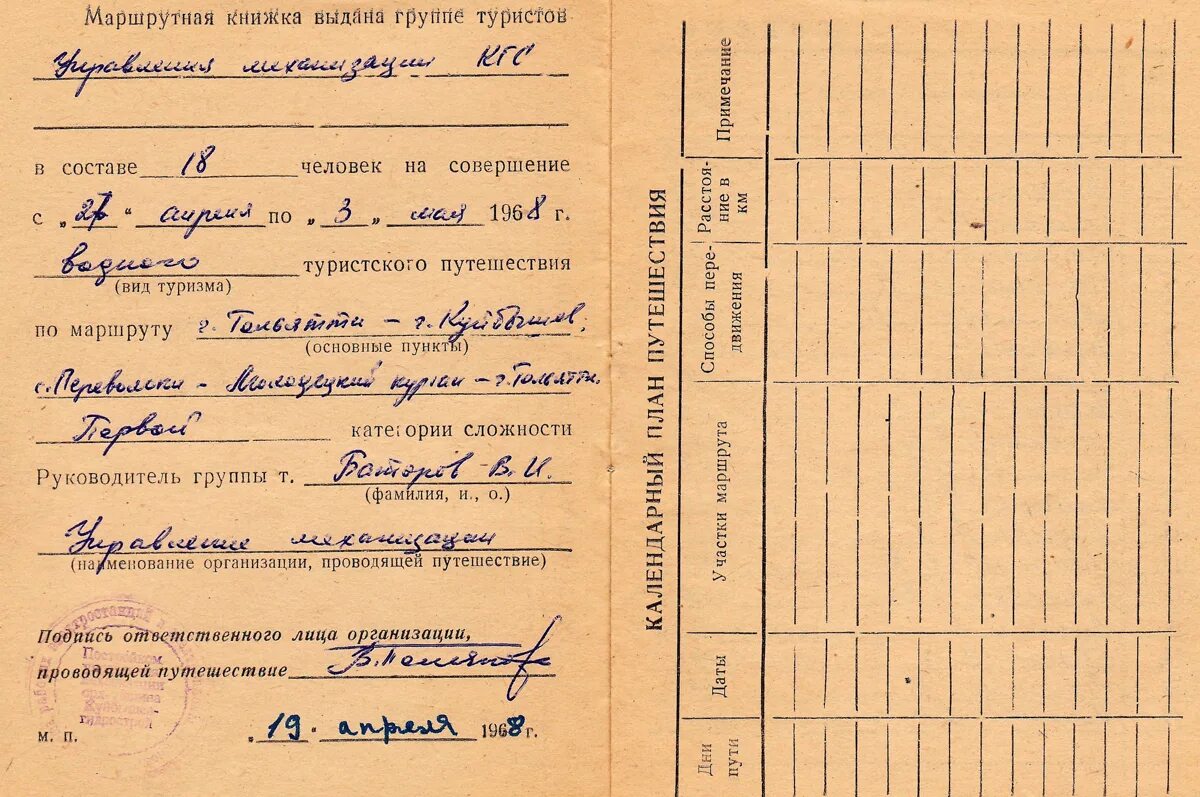 Маршрутная книжка выдана группе туристов
Управления механизации КГС
в составе 18 человек на совершение
с „ “ апреля по „ 3 „ мая 1968 г.
водного туристского путешествия
(вид туризма)
по маршруту г. Тольятти – г. Куйбышев,
(основные пункты)
с. Переволоки – Молодецкий курган – г. Тольятти.
Первой категории сложности
Руководитель группы т. В. И.
(фамилия, и., о.)
Управление механизации
(наименование организации, проводящей путешествие)
Подпись ответственного лица организации,
проводящей путешествие
м. п. „ 19 “ апреля 1968 г.
КАЛЕНДАРНЫЙ ПЛАН ПУТЕШЕСТВИЯ
Дни пути
Даты
Участки маршрута
Способы пере-
движения
Расстоя-
ние в
км
Примечание